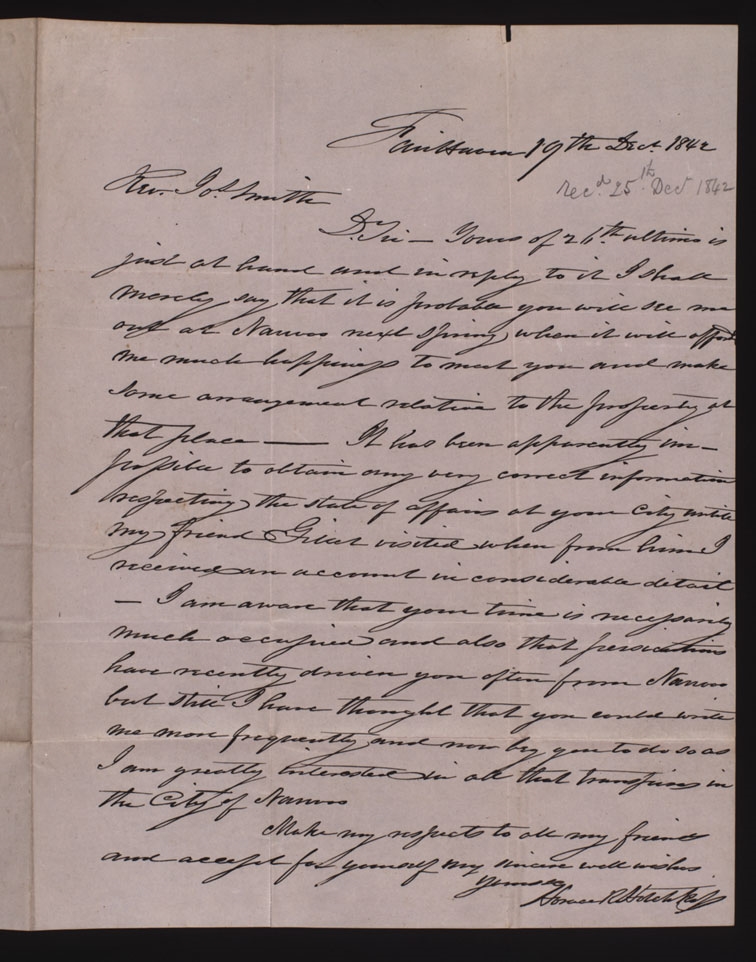 Fair Haven 19th Dec. 1842
recd. 25th Decr 1842
Rev. Jos. Smith
Dr. Sir — Yours of 26th. ultimo is
just at hand and in reply to it I shall
merely say, that it is probable you will see me
out at Nauvoo next Spring, when it will afford
me much happiness to meet you and make
some arrangement relative to the property at
that place —— It has been apparently im-
possible to obtain any very correct information
respecting the state of affairs at your City until
my friend Gillet visited when from him I
received an account in considerable detail
— I am aware that your time is necessarily
much occupied and also that persecutions
have recently driven you often from Nauvoo
but still I have thought that you could write
me more frequently and now beg you to do so as
I am greatly interested in all that transpires in
the City of Nauvoo
Make my respects to all my friends
and accept for yourself my sincere well wishes
Yours
Horace R Hotchkiss